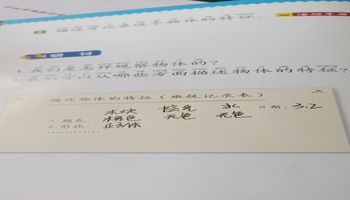 描述并记录下物体的特征。
研讨
1.我们是怎样观察物体的？
2.我们可以从哪些方面描述物体的特征？
描述物体的特征（班级记录表）
木块 水 日期：3.2
1.颜色： 本色 无色 无色
2.形状： 正方体